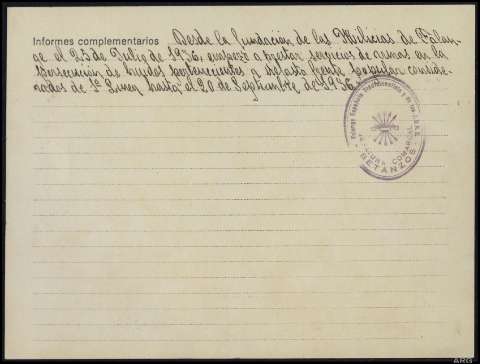 Informes complementarios Desde la fundación de las Milicias de Falan-
ge el 25 de Julio de 1936, empezó a prestar servicios de armas en la
persecución de huidos pertenecientes a nefasto frente popular conside-
rados de 1ª Linea hasta el 20 de Septiembre de 1936.
Falange Española Tradicionalista y de las J.O.N.S.
JEFATURA COMARCAL
BETANZOS
ARG